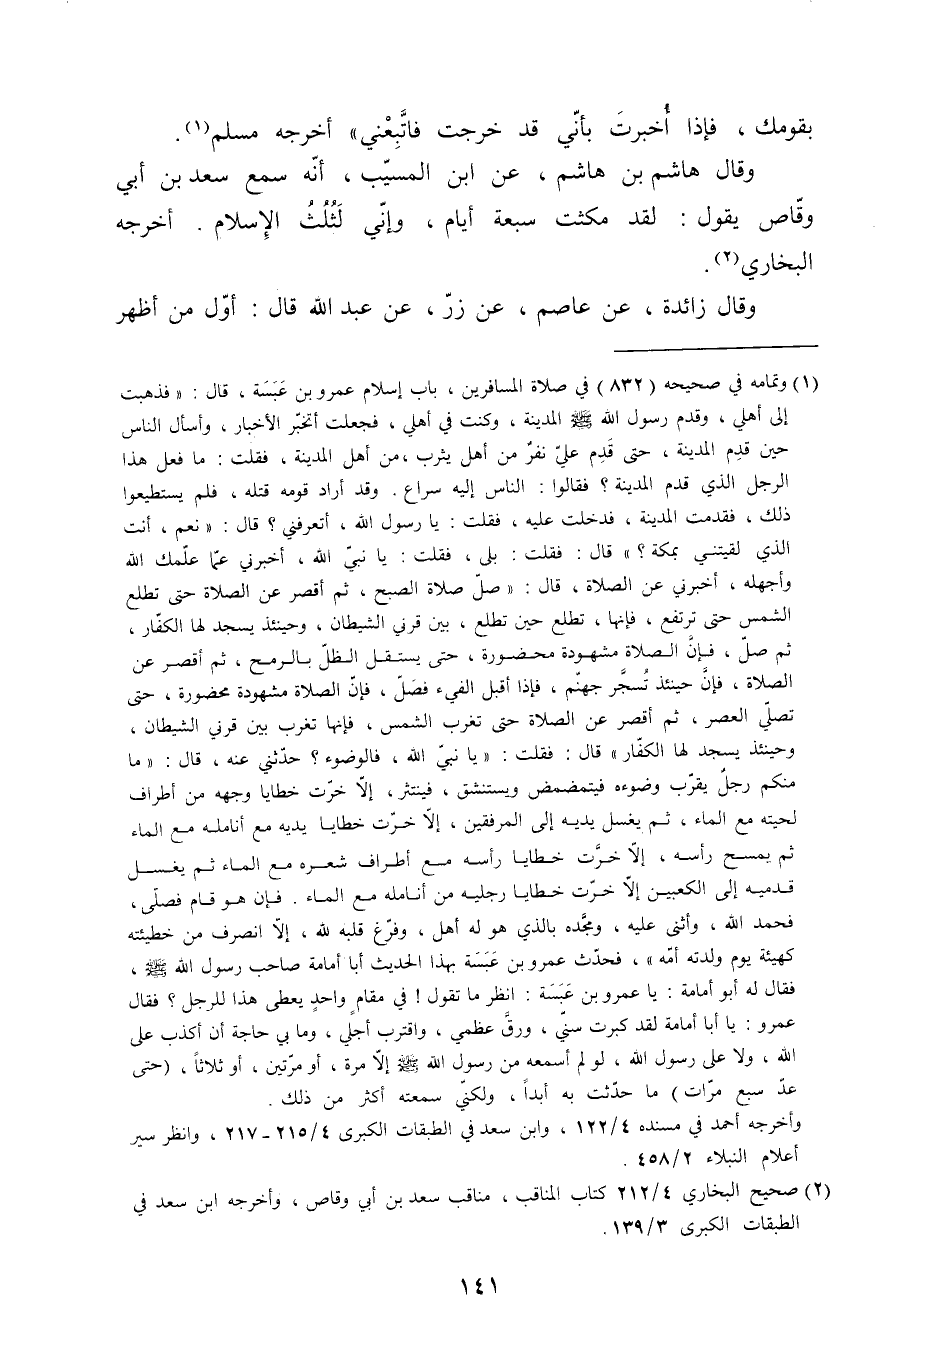 بقومك ، فإذا أُخبرتَ بأنّي قد خرجت فاتَّبِعْني» أخرجه مسلم(١).
وقال هاشم بن هاشم ، عن ابن المسيّب ، أنّه سمع سعد بن أبي
وقّاص يقول : لقد مكثت سبعة أيام ، وإنّي لَثُلُثُ الإسلام . أخرجه
البخاري(٢).
وقال زائدة ، عن عاصم ، عن زرّ ، عن عبد الله قال : أوّل من أظهر
(١) وتمامه في صحيحه (٨٣٢) في صلاة المسافرين ، باب إسلام عمرو بن عَبَسَة ، قال : « فذهبت
إلى أهلي ، وقدم رسول الله ﷺ المدينة ، وكنت في أهلي ، فجعلت أتخبّر الأخبار ، وأسأل الناس
حين قدِم المدينة ، حتى قَدِم عليّ نفرٌ من أهل يثرب ،من أهل المدينة ، فقلت : ما فعل هذا
الرجل الذي قدم المدينة ؟ فقالوا : الناس إليه سراع . وقد أراد قومه قتله ، فلم يستطيعوا
ذلك ، فقدمت المدينة ، فدخلت عليه ، فقلت : يا رسول الله ، أتعرفني ؟ قال : « نعم ، أنت
الذي لقيتني بمكة ؟ » قال : فقلت : بلى ، فقلت : يا نبيّ الله ، أخبرني عمّا علّمك الله
وأجهله ، أخبرني عن الصلاة ، قال : « صلّ صلاة الصبح ، ثم أقصر عن الصلاة حتى تطلع
الشمس حتى ترتفع ، فإنها ، تطلع حين تطلع ، بين قرني الشيطان ، وحينئذ يسجد لها الكفّار ،
ثم صلّ ، فإنَّ الصلاة مشهودة محضورة ، حتى يستقل الظلّ بالرمح ، ثم أقصر عن
الصلاة ، فإنَّ حينئذ تُسجَّر جهنّم ، فإذا أقبل الفيء فصَلّ ، فإنّ الصلاة مشهودة محضورة ، حتى
تصلّي العصر ، ثم أقصر عن الصلاة حتى تغرب الشمس ، فإنها تغرب بين قرني الشيطان ،
وحينئذ يسجد لها الكفّار» قال : فقلت : « يا نبيّ الله ، فالوضوء ؟ حدّثني عنه ، قال : « ما
منكم رجلٌ يقرّب وضوءه فيتمضمض ويستنشق ، فينتثر ، إلاّ خرّت خطايا وجهه من أطراف
لحيته مع الماء ، ثم يغسل يديه إلى المرفقين ، إلاّ خرّت خطايا يديه مع أنامله مع الماء
ثم يمسح رأسه ، إلاّ خرَّت خطايا رأسه مع أطراف شعره مع الماء ثم يغسل
قدميه إلى الكعبين إلاّ خرّت خطايا رجليه من أنامله مع الماء . فإن هو قام فصلّى ،
فحمد الله ، وأثنى عليه ، ومجَّده بالذي هو له أهل ، وفرّغ قلبه لله ، إلاّ انصرف من خطيئته
كهيئة يوم ولدته أمّه » ، فحدّث عمرو بن عَبَسَة بهذا الحديث أبا أمامة صاحب رسول الله ﷺ ،
فقال له أبو أمامة : يا عمرو بن عَبَسَة : انظر ما تقول ! في مقام واحدٍ يعطى هذا للرجل ؟ فقال
عمرو : يا أبا أمامة لقد كبرت سنّي ، ورقَّ عظمي ، واقترب أجلي ، وما بي حاجة أن أكذب على
الله ، ولا على رسول الله ، لو لم أسمعه من رسول الله ﷺ إلاّ مرة ، أو مرّتين ، أو ثلاثاً ، (حتى
عدّ سبع مرّات) ما حدّثت به أبداً ، ولكنّي سمعته أكثر من ذلك .
وأخرجه أحمد في مسنده ١٢٢/٤ ، وابن سعد في الطبقات الكبرى ٢١٥/٤ - ٢١٧ ، وانظر سير
أعلام النبلاء ٤٥٨/٢ .
(٢) صحيح البخاري ٢١٢/٤ كتاب المناقب ، مناقب سعد بن أبي وقاص ، وأخرجه ابن سعد في
الطبقات الكبرى ١٣٩/٣.
١٤١